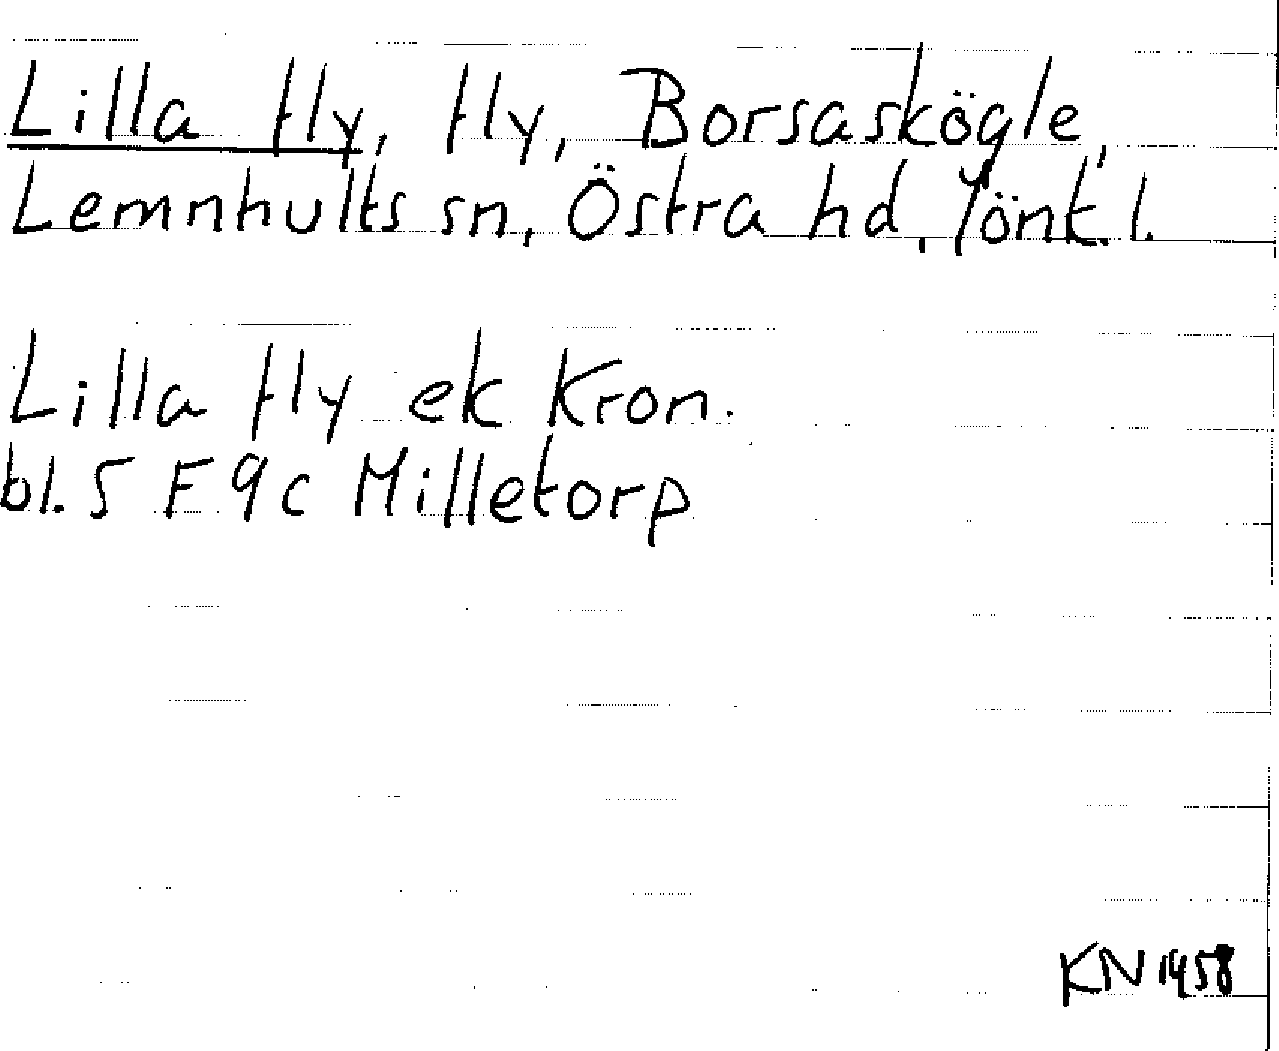 Lilla fly, fly, Borsaskögle,
Lemnhults sn, Östra hd, Jönk. l.
Lilla fly ek Kron.
bl. 5 F 9c Milletorp
KN 1958